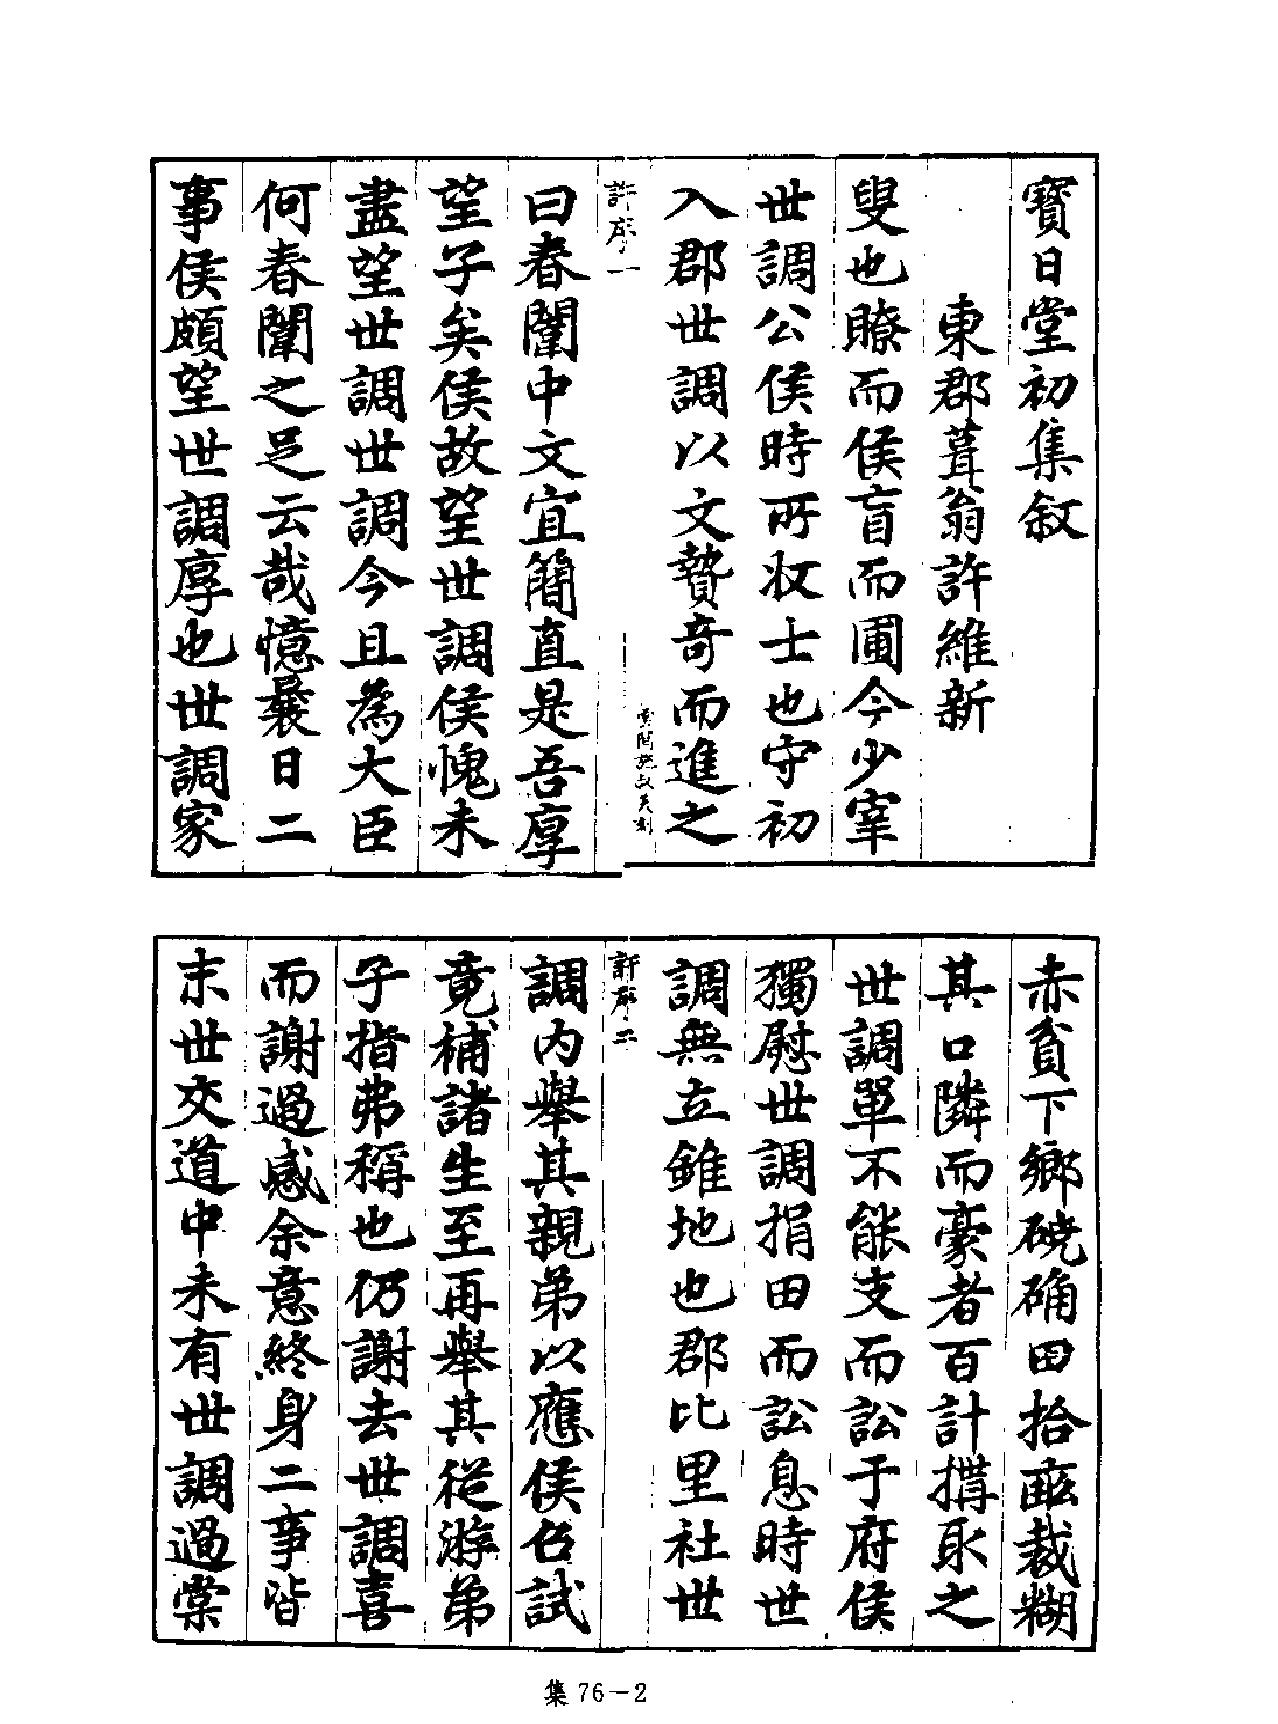 寶日堂初集敘
東郡葺翁許維新
叟也瞭而侯盲而圃今少宰
世調公侯時所收士也守初
入郡世調以文贄奇而進之
許序一
曰春闈中文宜簡直是吾厚
望子矣侯故望世調侯愧未
盡望世調世調今且為大臣
何春闈之足云哉憶曩日二
事侯頗望世調厚也世調家
赤貧下鄉磽确田拾畝裁糊
其口隣而豪者百計搆取之
世調單不能支而訟于府侯
獨慰世調捐田而訟息時世
調無立錐地也郡比里社世
許序二
調内舉其親弟以應侯召試
竟補諸生至再舉其從游弟
子指弗稱也仍謝去世調喜
而謝過感余意終身二事皆
末世交道中未有世調過棠
集 76－2